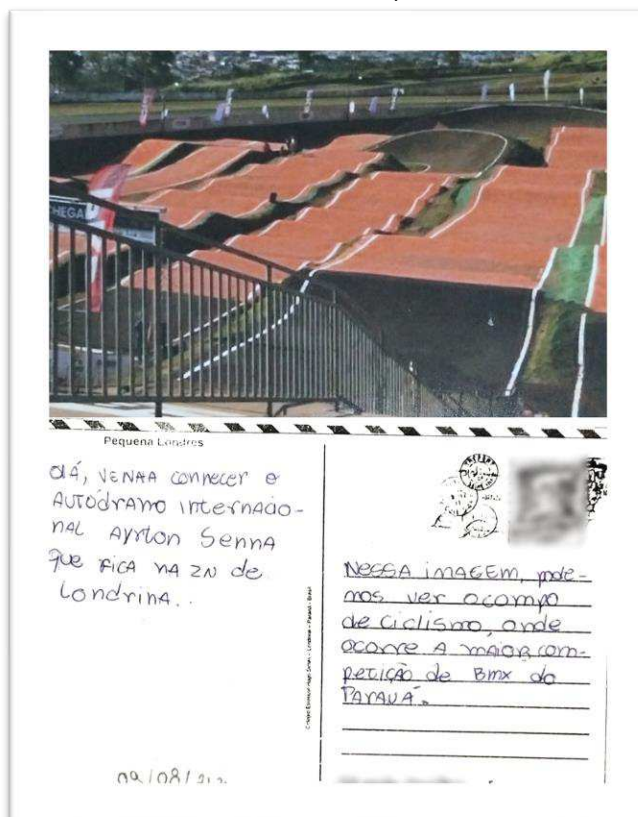 CHEGA
Pequena Londres
OLÁ, VENHA conhecer o
AUTÓDRAMO INTERNACIO-
NAL AYRTON SENNA
que FICA NA ZN de
Londrina..
09/08/
NESSA IMAGEM, pode-
mos ver o campo
de ciclismo, onde
ocorre A MAIOR com-
petição de Bmx do
PARANÁ.